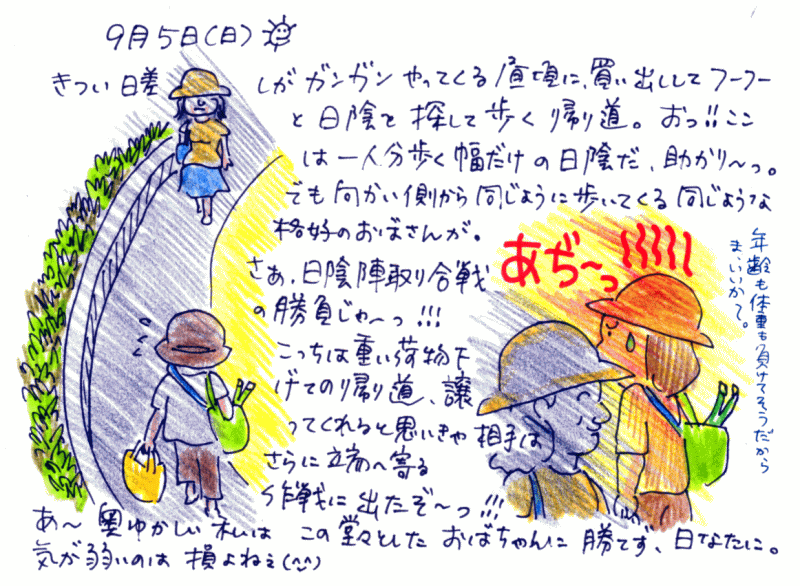 9月5日(日)
きつい日差しがガンガンやってくる昼頃に、買い出ししてフーフー
と日陰を探して歩く帰り道。おっ!!ここ
は一人分歩く幅だけの日陰だ、助かり〜っ。
でも向かい側から同じように歩いてくる同じような
格好のおばさんが。
さぁ、日陰陣取り合戦
の勝負じゃ〜っ!!!
こっちは重い荷物下
げての帰り道、譲
ってくれると思いきや相手は
さらに立端へ寄る
作戦に出たぞ〜っ!!!
あ〜奥ゆかしい私はこの堂々としたおばちゃんに勝てず、日なたに。
気が弱いのは損よねぇ(^^)
あぢ〜っ
年齢も体重も負けてそうだから
ま、いいかて。